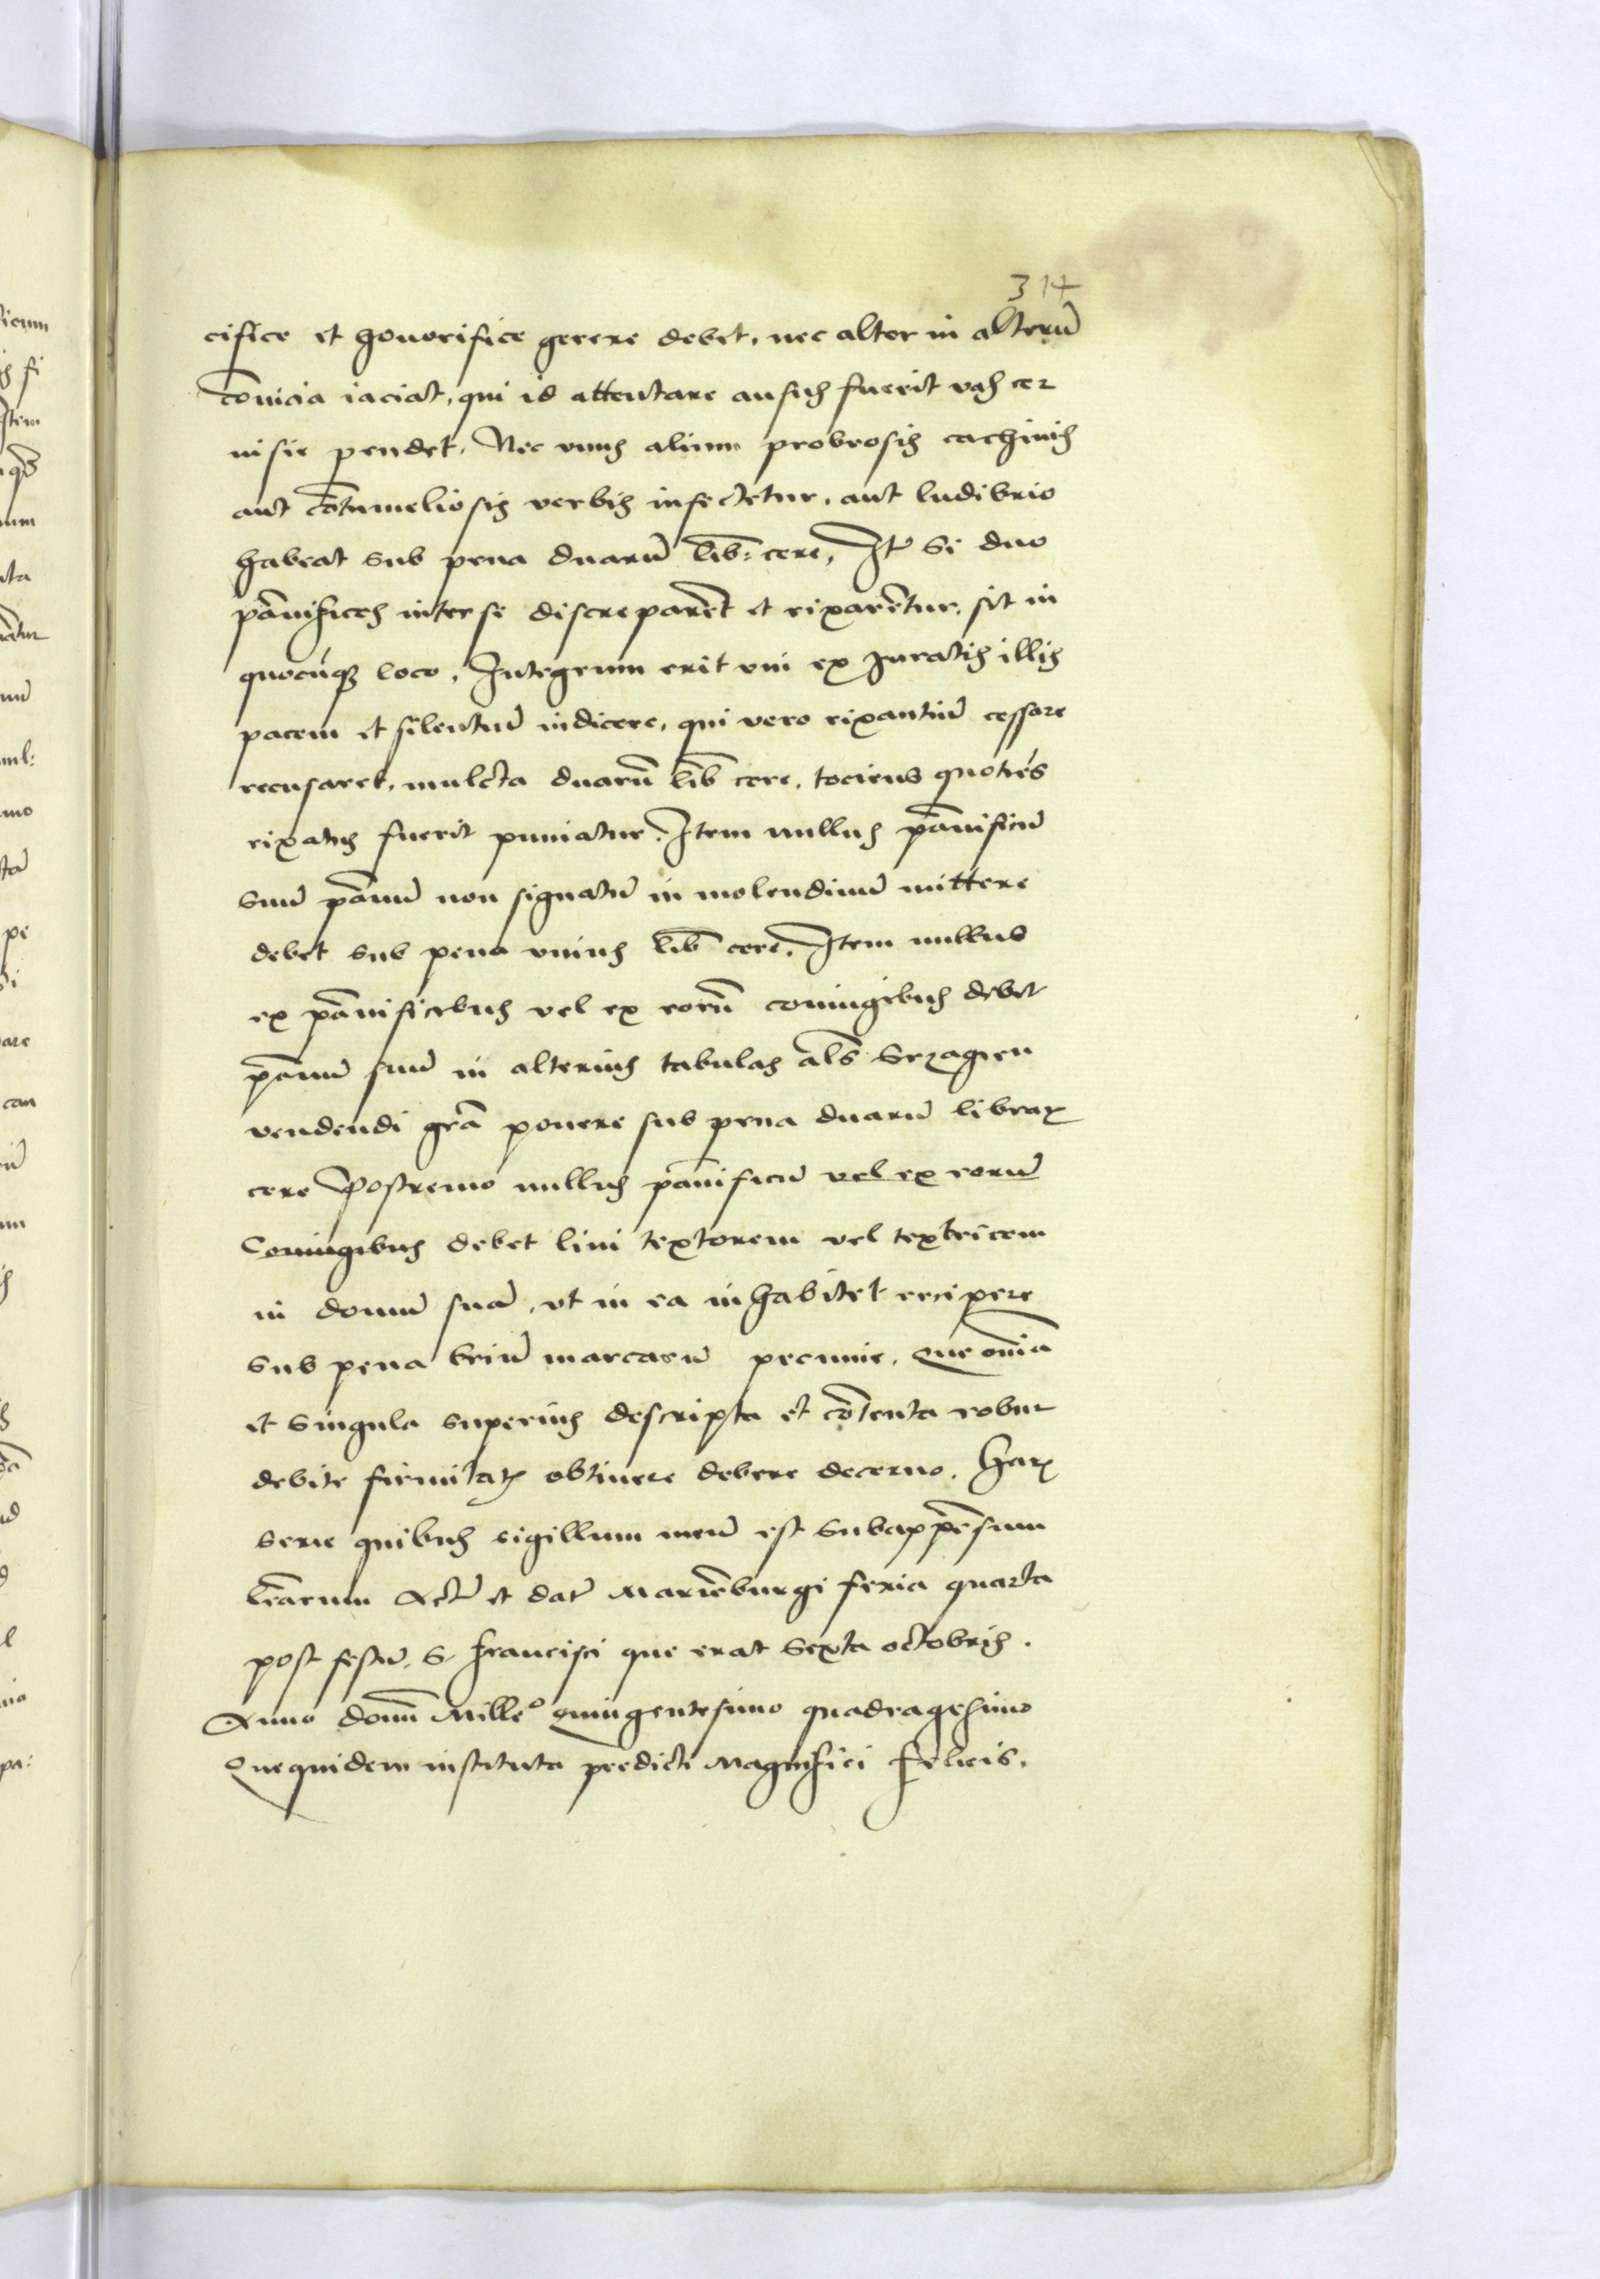 314
cifice et honorifice gerere debet, nec alter in alterū
cōuicia iaciat, qui id attentare ausus fuerit vas cer
uisie pendet. Nec vnus alium probrosis cachinis
aut cōtumeliosis verbis insectetur, aut ludibrio
habeat sub pena duarū lib: cere, Itē Si duo
pānifices inter se discreparēt et rixarētur, sit in
quocūq3 loco, Integrum erit vni ex Juratis illis
pacem et silentiū indicere, qui vero rixantiū cessare
recusaret, mulcta duarū lib cere, tociens quoties
rixatus fuerit puniatur. Item nullus pānificū
suū pānū non signatū in molendinū mittere
debet sub pena vnius lib cere. Item nullus
ex pānificibus vel ex eorū coniugibus debet
pānū suū in alterius tabulas als Srzagien
vendendi grā ponere sub pena duarū librarꝫ
cere Postremo nullus pānificū vel ex eorū
Coniugibus debet lini textorem vel textricem
in domū suā, vt in ea inhabitet recipere
sub pena triū marcarū pecunie. Que omīa
et Singula superius descripta et cōtenta robur
debite firmitatꝫ obtinere debere decerno. Harꝫ
serie quibus sigillum meū est subappēsum
lrārum Actū et datū Mariēburgi feria quarta
post festū. S. Francisci que erat Sexta octobris.
Anno domī Mille° quingentesimo quadragesimo
Quequidem instituta predicti Magnifici Felicis.
ficum
are
can